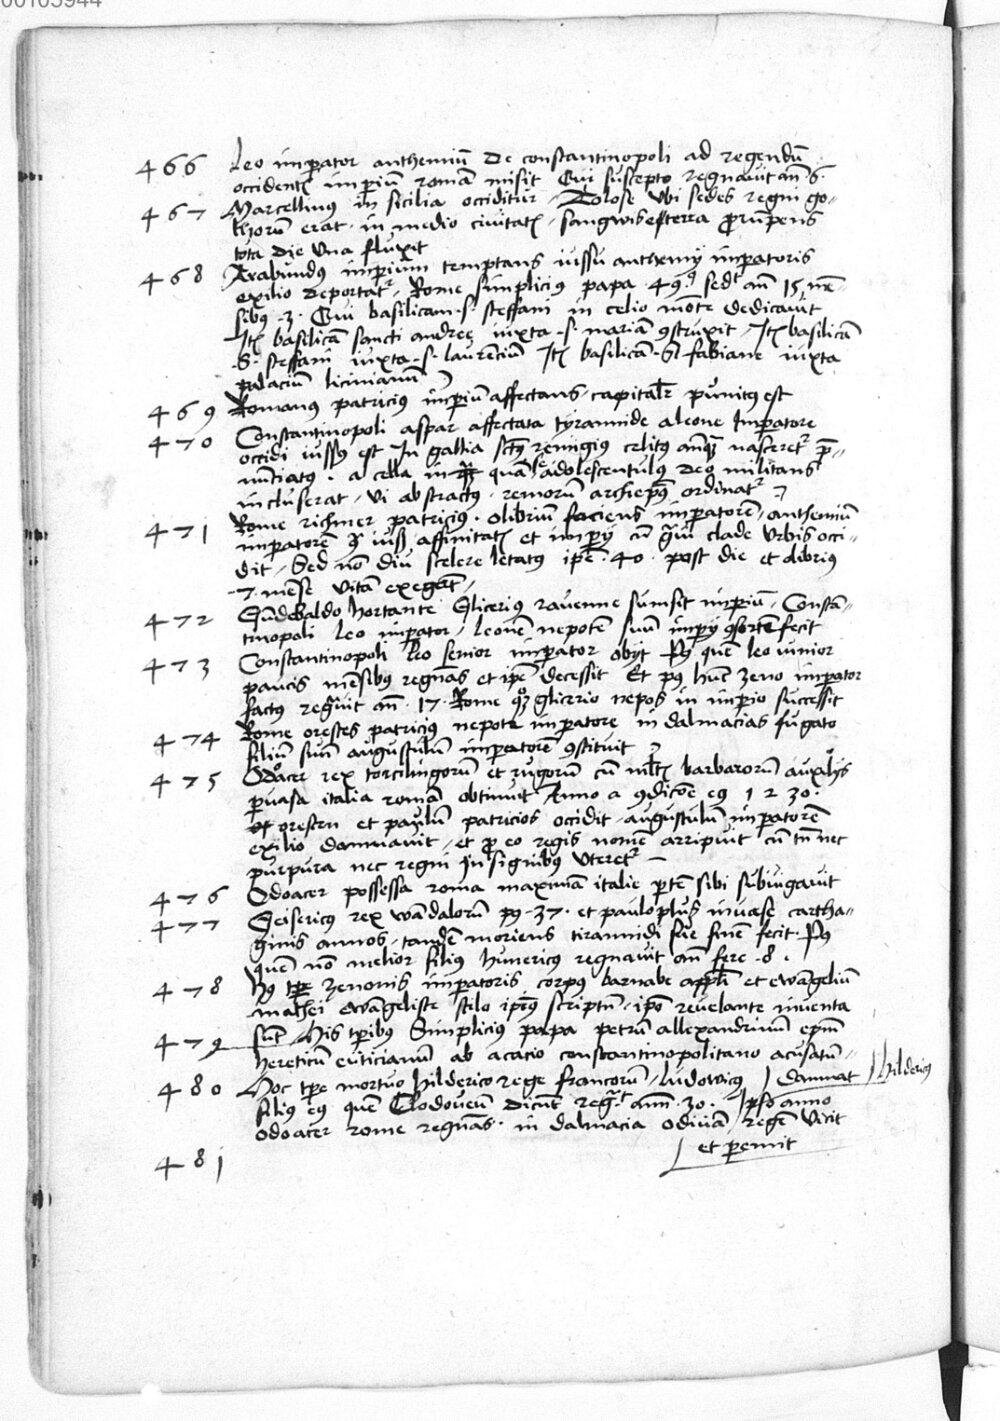 00103944
466 Leo imperator anthemiũ de constantinopoli ad regendũ
occidentꝭ imperiũ romã misit Qui suscepto regnavit añ 6.
467 Marcellinus in sicilia occiditur Tolose ubi sedes regni go-
thorũ erat in medio civitatꝭ sangwis e terra prorũpens
tota die una fluxit
468 Arabundus imperium temptans iussu anthemij imperatoris
exilio deportatr Rome simplicius papa 49us sedt añ 15 mẽ-
sibus 3. Qui basilicam s. steffani in celio mõte dedicavit
Itẽ basilicã sancti andree iuxta s. mariã ꝯstruxit Itẽ basilicã
S. steffani iuxta s. laurẽcium Itẽ basilicã fabiane iuxta
palacium licinianũ
469 Romanus patricius imperiũ affectans capitalr punitus est
470 Constantinopoli aspar affectata tyrannide a leone Imperatore
occidi iussus est In gallia sctus remigius celitus anqz nasceretr p̃-
nũtiatus a cella in quã se adolescentulus deo militans
incluserat vi abstractus remorũ archiepus ordinatr
471 Rome richmer patricius olibriũ faciens imperatorẽ anthemiũ
imperatorẽ affinitatꝭ et imperij cũ clade urbis occi-
dit Sed nõ diu scelere letatus ipẽ 40. post die et olibrius
7. mẽse vitã exegert
472 Gũdebaldo hortante Glicerius ravenne sumsit imperiũ Constã-
tinopoli leo imperator leonẽ nepotẽ suũ imperij ꝯsortẽ fecit
473 Constantinopoli leo senior imperator obijt Pꝰ quẽ leo iunior
paucis mẽsibus regnãs et ipẽ decessit Et pꝰ hũc zeno imperator
factus regvit añ 17. Rome glicerio nepos in imperio successit
474 Rome orestes patricius nepote imperatore in dalmacias fugato
filiũ suũ augustulũ imperatorẽ ꝯstituit
475 Odoacer rex torcilingorũ et rugorũ cũ barbarorũ auxilijs
pervasa italia romã obtinuit Anno a ꝯdicõe eꝰ 1230.
orestẽ et paulũ patricios occidit augustulũ imperatorẽ
exilio damnavit et pro eo regis nomẽ arripuit cũ tñ nec
purpura nec regni Insignibus uteretr
476 Odoacer possessa roma maximã italie pertẽ sibi subiugavit
477 Geisericus rex wãdalorũ pꝰ 37. et paulo plus invase cartha-
ginis annos tandẽ moriens tirannidi sue finẽ fecit Pꝰ
quẽ nõ melior filius hunericus regnavit añ fere 8.
478 Hꝰ tpe zenonis imperatoris corpus barnabe appli et ewãgeliũ
mathei ewãgeliste stilo ipẽꝰ scriptũ ipõ revelante inventa
479 sũt His tpibus Simplicius papa petrũ allexandrinũ epm
hereticũ euticianũ ab acacio constantinopolitano acusatũ
damnat
480 Hoc tpe mortuo hilderico rege francorũ ludowicus Hildericus
filius eꝰ quẽ Clodoveũ dicũt regt ann 30. Ipso anno
odoacer rome regnãs in dalmacia odiviã regẽ vicit
et peremit
481